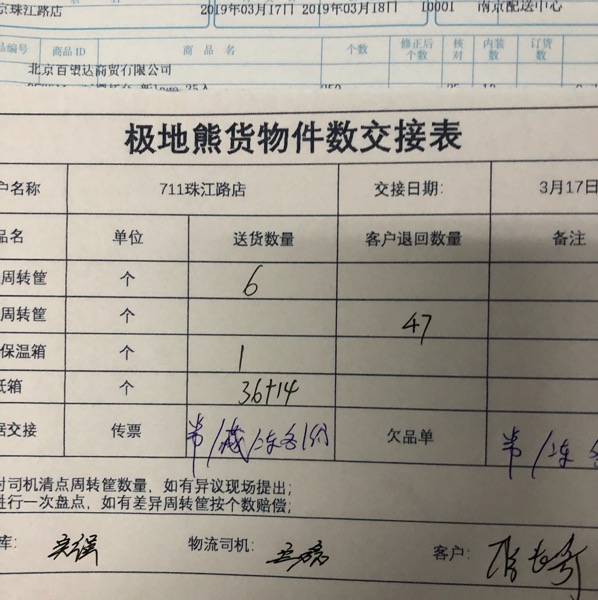 京珠江路店 2019年03月17日 2019年03月18日 10001 南京配送中心
品编号 商品ID 商 品 名 个数 修正后个数 核对 内装数 订货数
北京百望达商贸有限公司
极地熊货物件数交接表
户名称 711珠江路店 交接日期: 3月17日
品名 单位 送货数量 客户退回数量 备注
周转筐 个 6
周转筐 个 47
保温箱 个 1
纸箱 个 36+14
据交接 传票 常/ /冻各1份 欠品单 常/冻
对司机清点周转筐数量，如有异议现场提出;
进行一次盘点，如有差异周转筐按个数赔偿;
库: 物流司机: 客户: